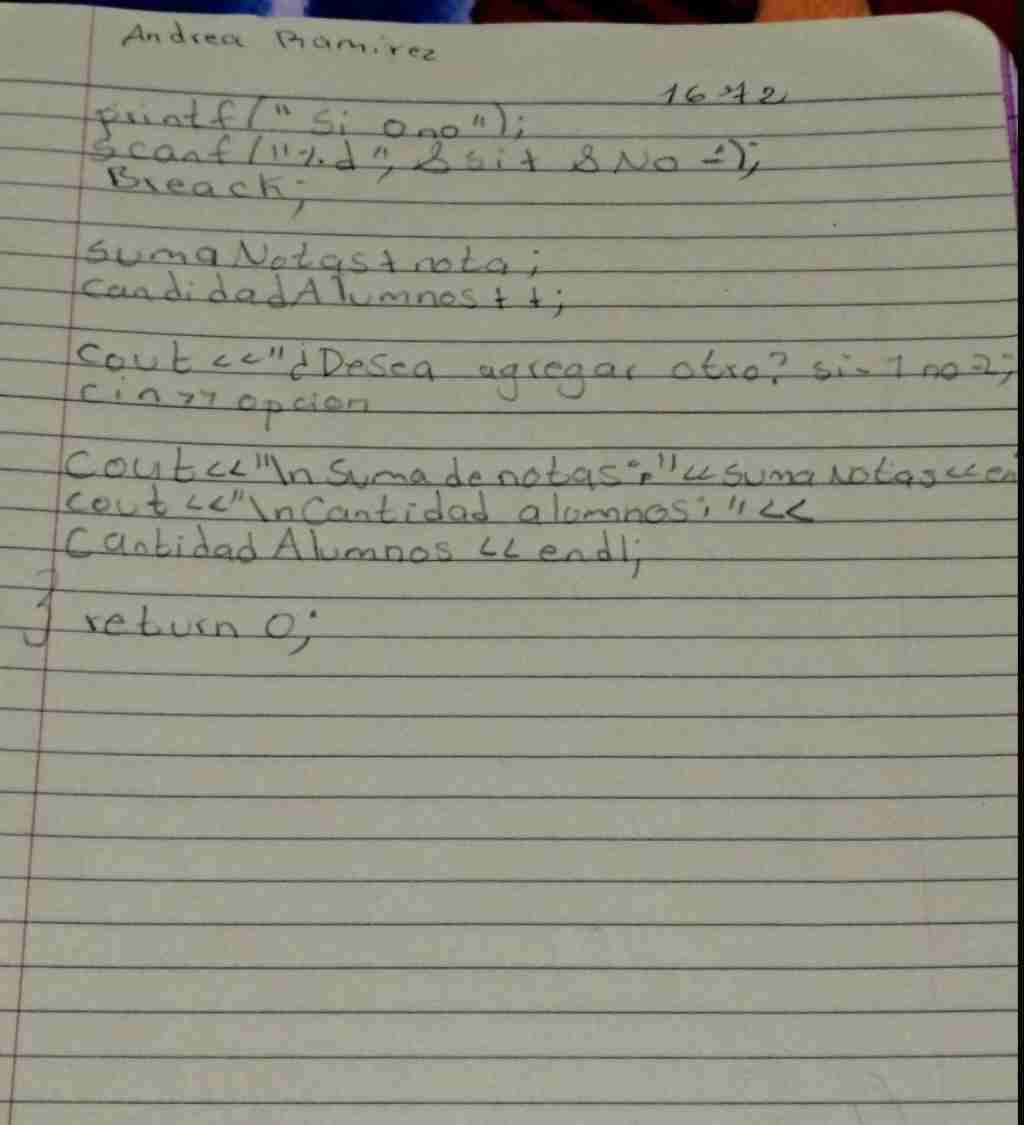 Andrea Ramirez
16 72
printf(" Si o no");
scanf ("%d", & si + & No -);
Breack;
suma Notas + nota;
candidad Alumnos + +;
Cout <<"¿Desea agregar otro? si-1 no-2;
cin >> opcion
Cout<<"\n Suma de notas:"<< suma Notas << en
cout <<"\n Cantidad alumnos: "<<
Cantidad Alumnos << endl;
} return 0;